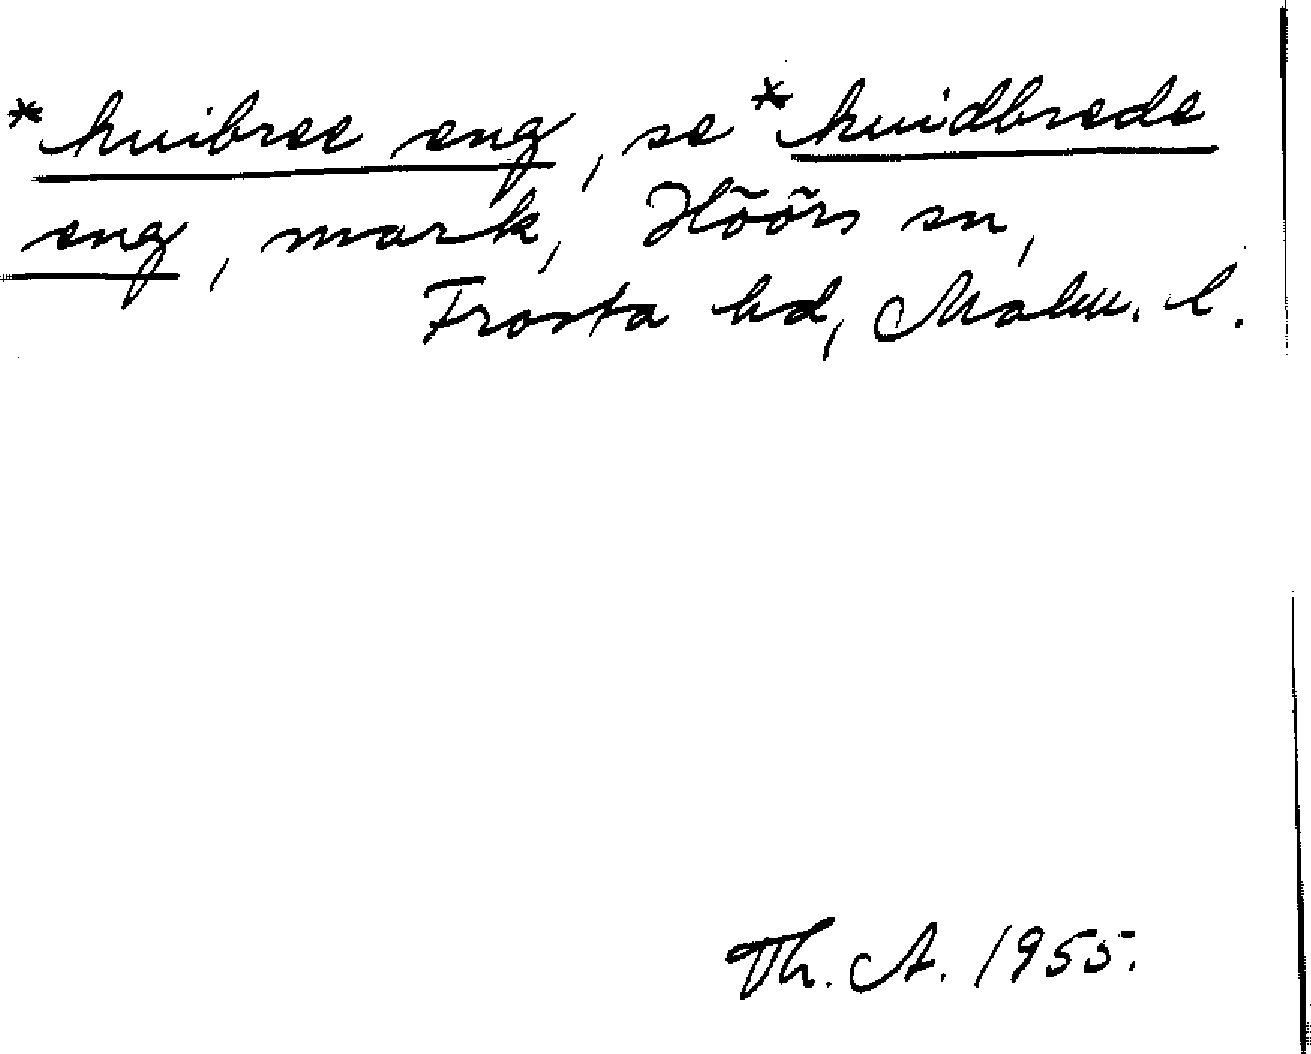 *huibree eng, se *huidbrede
eng, mark, Höörs sn,
Frosta hd, Malm. l.
Th. A. 1955.